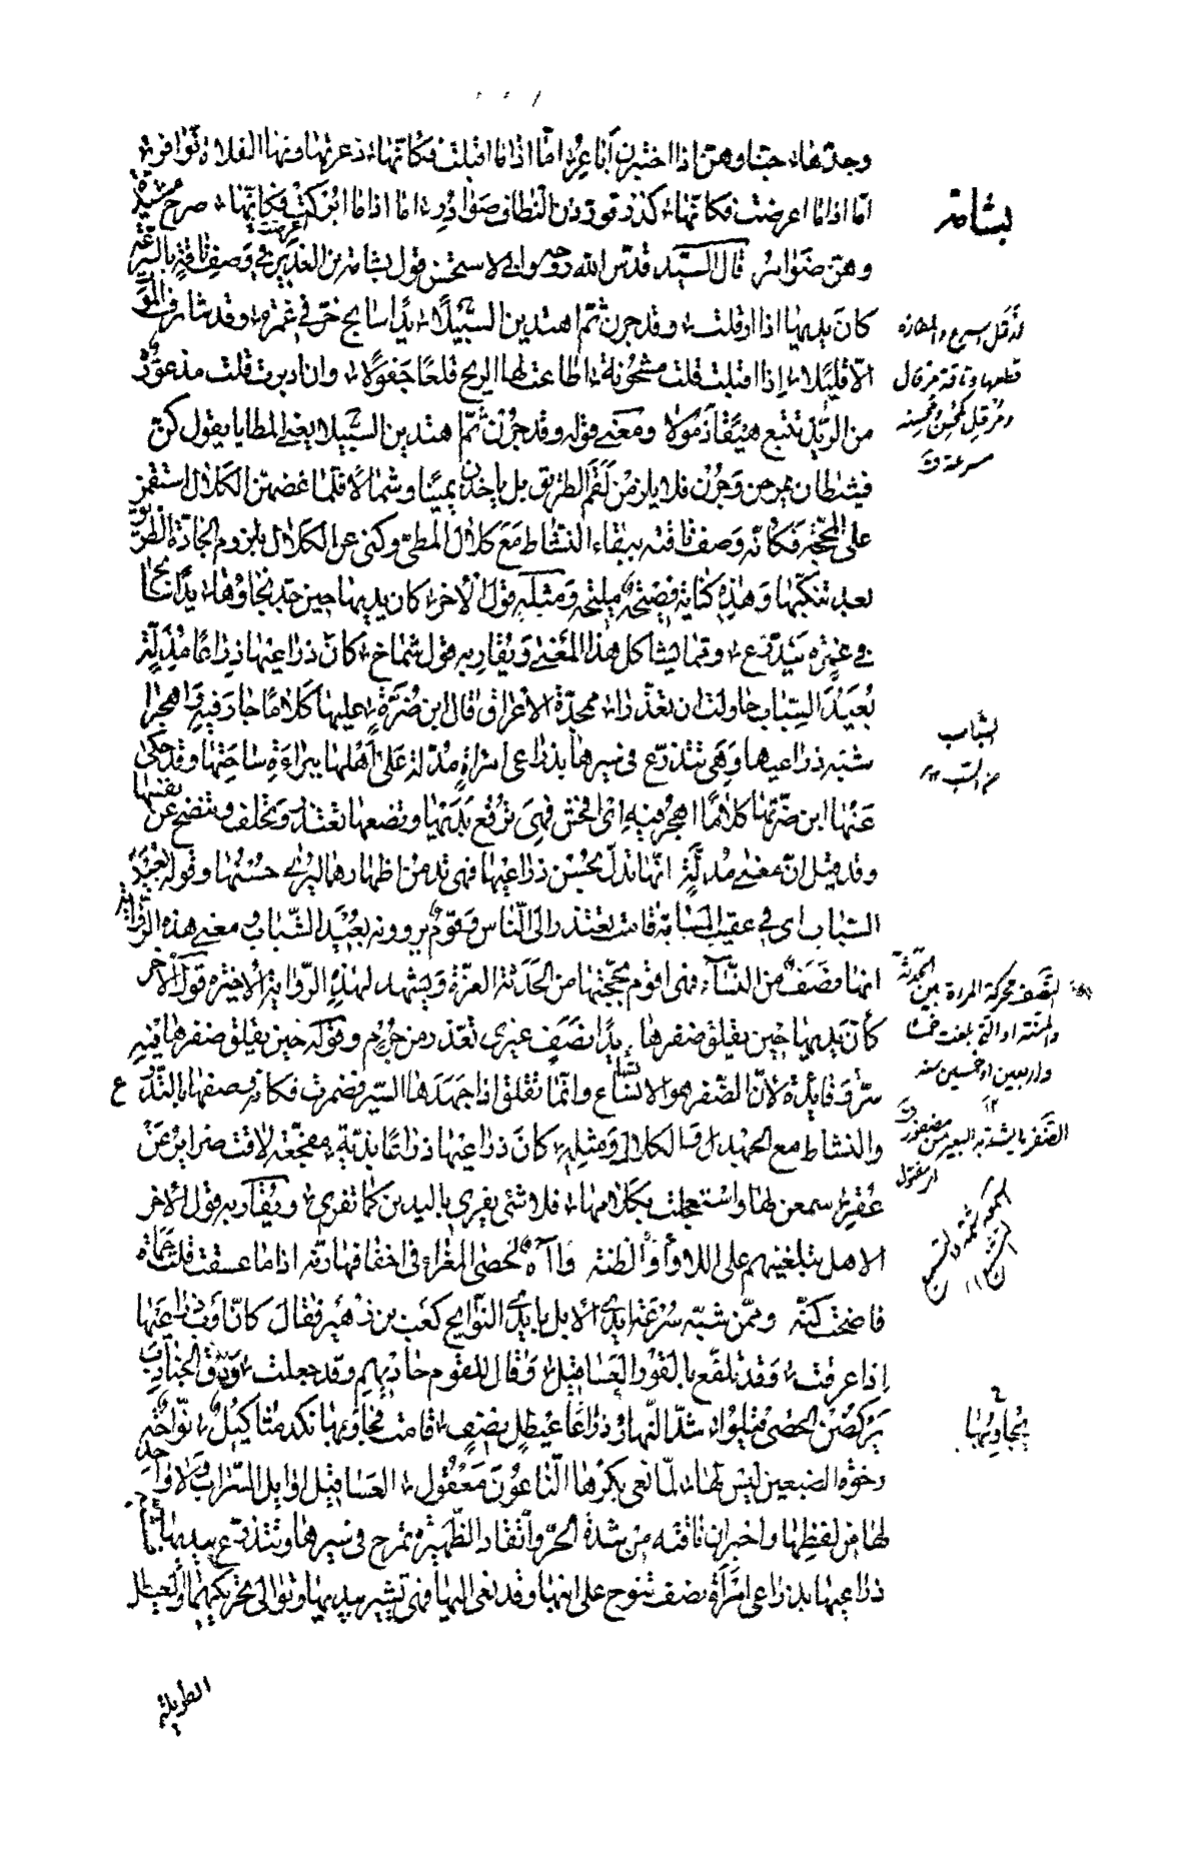 وجدتها، حينا وهن اذا اختبرن أباعر، امّا اذا ما اقبلت فكانّها، ذعرتها منها الفلاة نوافر،
امّا اذا ما اعرضت فكانّها، كدر توردن النطاف صوادر، امّا اذا ما ابركت فكانّها، صرح مشيّدة
وهن ضوامر قال السيّد قدّس الله روحه وانى لاستحسن قول بشامة بن الغدير في وصف ناقة بالسرعة
كانّ يديها اذا ارقلت، وقد جرن ثمّ اهتدين السبيلا، يدا سابح خرّ في غمرة، وقد شارف الموت
الّا قليلا، إذا اقبلت قلت مشحونة، اطاعت لها الريح قلعا جفولا، وان ادبرت قلت مذعورة
من الربد تتبع هيقا ذمولا ومعنى قوله وقد جرن ثمّ اهتدين السبيلا يعنى المطايا يقول كنّ
نشطات يمرحن ويجرن فلا يلزمن لقم الطريق بل ياخذن يمينا وشمالا فلمّا عضهنّ الكلال استقمن
على المحجّة فكانّه وصف ناقته ببقاء النشاط مع كلال المطيّ وكنى عن الكلال بلزوم الجادّة الطريق
بعد تنكّبها وهذه كناية فصيحة مليحة ومثله قول الاخر، كان يديها حين جدّ نجاؤها، يدا سابح
في غمرة يتذرّع، وممّا يشاكل هذا المعنى ويقاربه قول شماخ، كانّ ذراعيها ذراعا مدلّة
بعيد السباب حاولت ان تعذّرا، ممجدّة الاعراق قال ابن ضرّة، عليها كلاما جار فيه واهجرا
شبّه ذراعيها وهي تتذرّع في سيرها بذراعي امراة مدلّة على اهلها ببراءة ساحتها وقد حكى
عنها ابن ضرّتها كلاما اهجر فيه اى افحش فهي ترفع يديها وتضعها تعتذر وتحلف وتنضح عن نفسها
وقد قيل انّ معنى مدلّة انّها تدلّ بحسن ذراعيها فهي تدمن اظهارهما ليرى حسنهما وقوله بعيد
السباب اى في عقيب المسابّة قامت تعتذر الى النّاس وقوم يروونه بعيد الشّباب ومعنى هذه الرّواية
انها نصف من النّساء فهى اقوم بحجّتها من الحدثة الغرّة ويشهد لهذه الرّواية الاخيرة قول الاخر
كأن يديها حين يقلق ضفرها، يدا نصف غيرى تعذر من جرم وقوله حين يقلق ضفرها فيه
سرّ وفائدة لانّ الضّفر هو الانساع وانّما تقلق اذا جهدها السير فضمرت فكانّه وصفها بالتذرّع
والنشاط مع الجهد والكلال ومثله، كانّ ذراعيها ذراعا بذيّة، مفجّعة لاقت ضراير عن
عقر، سمعن لها واستعجلت بكلامها، فلا شئ يفري باليدين كما تفري، ويقاربه قول الاخر
الا هل تبلغينهم على اللاواء والظنة
وممّن شبّه سرعة ايدي الابل بايدي النّوايح كعب بن زهير فقال كانّ اوب ذراعيها
اذا عرقت، وقد تلفّع بالقور العساقيل، وقال للقوم حاديهم وقد جعلت، ورق الجنادب
يركضن الحصى قيلوا، شدّ النّهار ذراعا عيطل نصف، قامت فجاوبها نكد مثاكيل، نوّاحة
رخوة الضبعين ليس لها، لمّا نعى بكرها النّاعون معقول، العساقيل اوايل السّراب ولا واحد
لها من لفظها واخبر ان ناقته من شدّة الحرّ واتّقاد الظّهيرة تمرح في سيرها وتتذرّع بيديها
ذراعيها بذراعى امرأة نصف تنوح على ابنها وقد نعى اليها فهى تشير بيديها وتوالى تحريكهما والعيطل
الطويلة
بشامة
ارقل اسرع والمفازة
قطعها وناقة مرقال
ومرقل كمحسن ومحسنة
مسرعة ق
السباب
من السب
النصف محركة المراة بين الحدثة
والمسنة او التي بلغت خمسا
واربعين او خمسين سنة
الضفر ما يشد به البعير من مضفور ق
يجاوبها